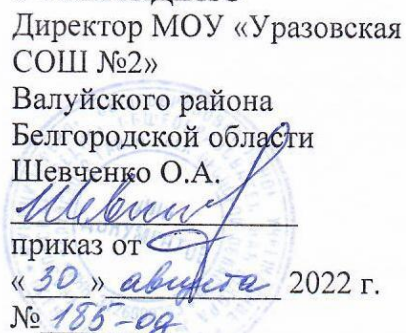 Директор МОУ «Уразовская
СОШ №2»
Валуйского района
Белгородской области
Шевченко О.А.
приказ от
« 30 » августа 2022 г.
№ 185-од